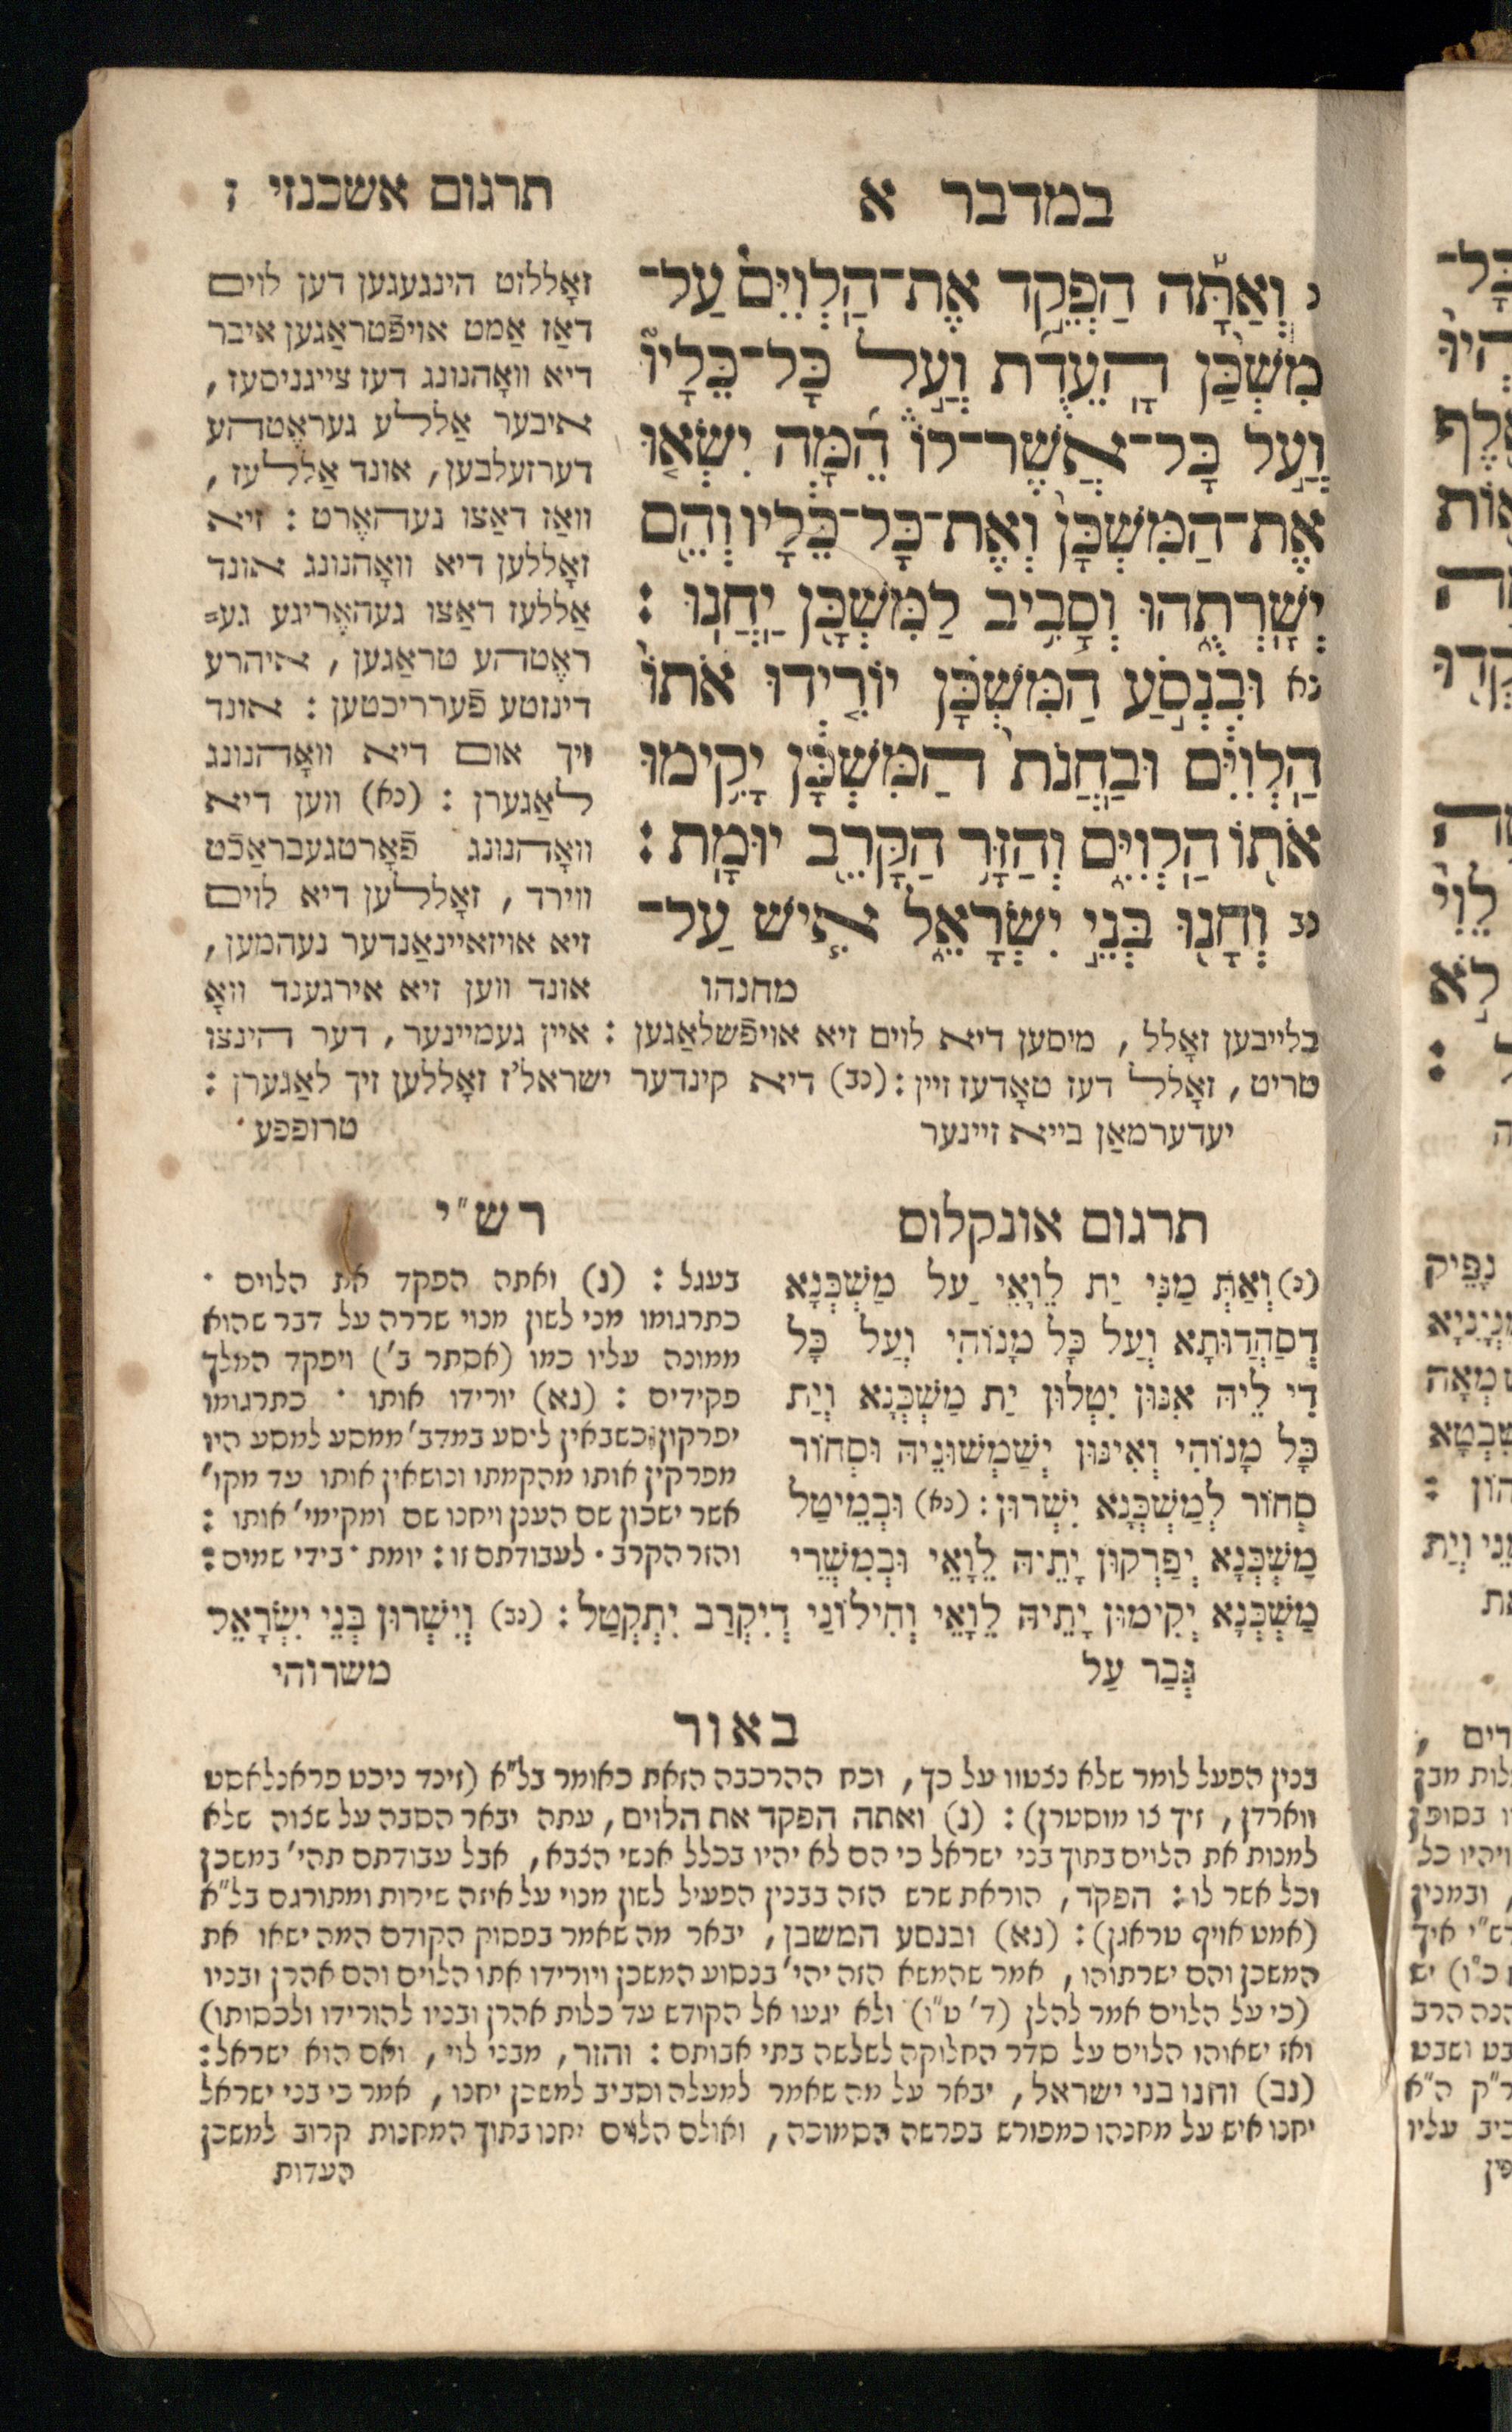 במדבר א
תרגום אשכנזי ז
נ וְאַתָּ֡ה הַפְקֵ֣ד אֶת־הַלְוִיִּם֩ עַל־
מִשְׁכַּ֨ן הָעֵדֻ֜ת וְעַ֣ל כָּל־כֵּלָיו֮
וְעַ֣ל כָּל־אֲשֶׁר־לוֹ֒ הֵ֜מָּה יִשְׂא֤וּ
אֶת־הַמִּשְׁכָּן֙ וְאֶת־כָּל־כֵּלָ֔יו וְהֵ֖ם
יְשָׁרְתֻ֑הוּ וְסָבִ֥יב לַמִּשְׁכָּ֖ן יַחֲנֽוּ :
נא וּבִנְסֹ֣עַ הַמִּשְׁכָּ֗ן יוֹרִ֤ידוּ אֹתוֹ֙
הַלְוִיִּ֔ם וּבַחֲנֹת֙ הַמִּשְׁכָּ֔ן יָקִ֥ימוּ
אֹת֖וֹ הַלְוִיִּ֑ם וְהַזָּ֥ר הַקָּרֵ֖ב יוּמָֽת :
נב וְחָנ֖וּ בְּנֵ֣י יִשְׂרָאֵ֑ל אִ֧ישׁ עַל־
מחנהו
זאָללזט הינגעגען דען לוים
דאַז אַמט אויפֿטראַגען איבר
דיא וואָהנונג דעז צייגניסעז ,
איבער אַללע געראֶטהע
דערזעלבען , אונד אַללעז ,
וואַז דאַצו געהאֶרט : זיא
זאָללען דיא וואָהנונג אונד
אַללעז דאַצו געהאֶריגע גע=
ראֶטהע טראַגען , איהרע
דינזטע פֿעрריכטען : אונד
זיך אום דיא וואָהנונג
לאַגערן : (נא) ווען דיא
וואָהנונג פֿאָרטגעבראַכֿט
ווירד , זאָללען דיא לוים
זיא אויזאיינאַנדער נעהמען ,
אונד ווען זיא אירגענד וואָ
בלייבען זאָלל , מיסען דיא לוים זיא אויפֿשלאַגען : איין געמיינער , דער הינצו
טריט , זאָלל דעז טאָדעז זיין : (נב) דיא קינדער ישראל'ז זאָללען זיך לאַגערן :
יעדערמאַן בייא זיינער טרופפע ·
תרגום אונקלוס
(נ) וְאַתְּ מַנִּי יַת לֵוָאֵי עַל מַשְׁכְּנָא
דְסַהֲדוּתָא וְעַל כָּל מָנוֹהִי וְעַל כָּל
דִי לֵיהּ אִנּוּן יִטְלוּן יַת מַשְׁכְּנָא וְיַת
כָּל מָנוֹהִי וְאִינּוּן יְשַׁמְשׁוּנֵיהּ וּסְחוֹר
סְחוֹר לְמַשְׁכְּנָא יִשְׁרוּן : (נא) וּבְמֵיטַל
מַשְׁכְּנָא יְפַרְקוּן יָתֵיהּ לֵוָאֵי וּבְמִשְׁרֵי
מַשְׁכְּנָא יְקִימוּן יָתֵיהּ לֵוָאֵי וְחִילוֹנַי דְיִקְרַב יִתְקְטַל : (נב) וְיִשְׁרוּן בְּנֵי יִשְׂרָאֵל
גְּבַר עַל משרוהי
רש״י
בעגל : (נ) ואתה הפקד את הלוים ·
כתרגומו מני לשון מנוי שררה על דבר שהוא
ממונה עליו כמו (אסתר ב') ויפקד המלך
פקידים : (נא) יורידו אותו · כתרגומו
יפרקון כשבאין ליסע במדב' ממסע למסע היו
מפרקין אותו מהקמתו ונושאין אותו עד מקו'
אשר ישכון שם הענן ויחנו שם ומקימי' אותו :
והזר הקרב · לעבודתם זו : יומת · בידי שמים :
באור
בנין הפעל לומר שלא נצטוו על כך , וכח ההרכבה הזאת כאומר בל״א (זיכד ניכט פראנלאסט
ווארדן , זיך צו מוסטרן) : (נ) ואתה הפקד את הלוים , עתה יבאר הסבה על שצוה שלא
למנות את הלוים בתוך בני ישראל כי הם לא יהיו בכלל אנשי הצבא , אבל עבודתם תהי' במשכן
וכל אשר לו : הפקד , הוראת שרש הזה בבנין הפעיל לשון מנוי על איזה שירות ומתורגם בל״א
(אמט אויף טראגן) : (נא) ובנסע המשכן , יבאר מה שאמר בפסוק הקודם המה ישאו את
המשכן והם ישרתוהו , אמר שהמשא הזה יהי' בנסוע המשכן ויורידו אתו הלוים והם אהרן ובניו
(כי על הלוים אמר להלן (ד' ט״ו) ולא יגעו אל הקודש עד כלות אהרן ובניו להורידו ולכסותו)
ואז ישאוהו הלוים על סדר החלוקה לשלשה בתי אבותם : והזר , מבני לוי , ואם הוא ישראל :
(נב) וחנו בני ישראל , יבאר על מה שאמר למעלה וסביב למשכן יחנו , אמר כי בני ישראל
יחנו איש על מחנהו כמפורש בפרשה הסמוכה , ואולם הלוים יחנו בתוך המחנות קרוב למשכן
העדות